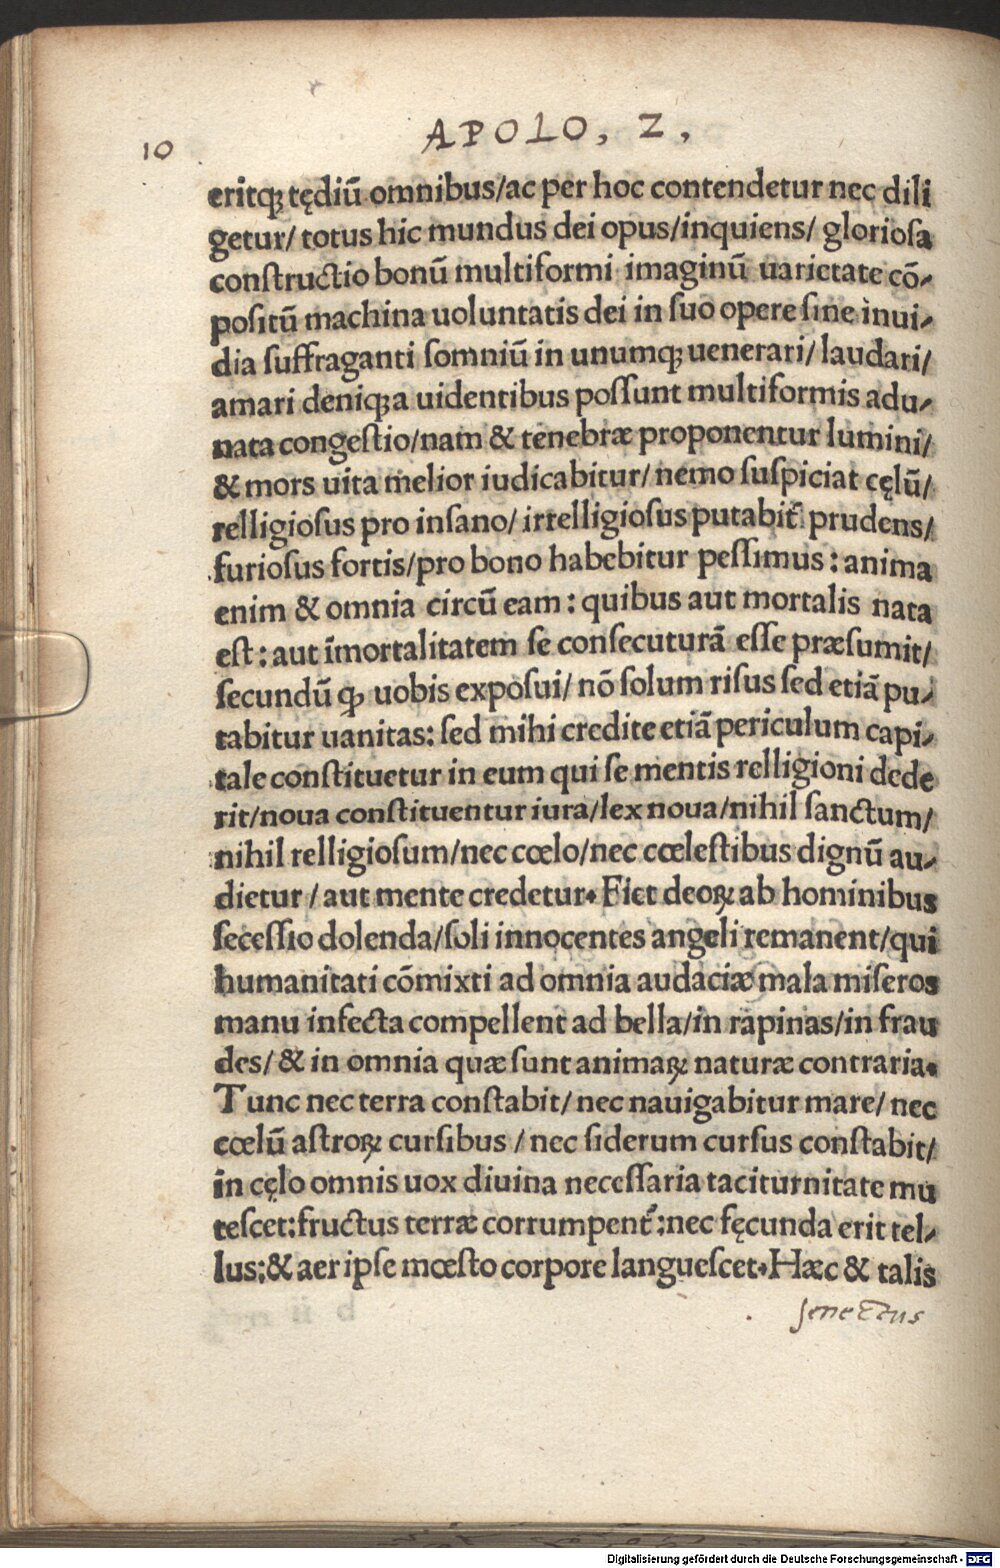 10
APOLO, 2,
eritq̨ tędiū omnibus/ac per hoc contendetur nec dili
getur/ totus hic mundus dei opus/inquiens/ gloriosa
constructio bonū multiformi imaginū uarietate cō-
positū machina uoluntatis dei in suo opere sine inui-
dia suffraganti somniū in unumq̨ uenerari/ laudari/
amari deniq̨ a uidentibus possunt multiformis adu-
nata congestio/nam & tenebræ proponentur lumini/
& mors uita melior iudicabitur/ nemo suspiciat cęlū/
relligiosus pro insano/ irrelligiosus putabit᷑ prudens/
furiosus fortis/pro bono habebitur pessimus: anima
enim & omnia circū eam: quibus aut mortalis nata
est: aut īmortalitatem se consecuturā esse præsumit/
secundū q̨ uobis exposui/ nō solum risus sed etiā pu-
tabitur uanitas: sed mihi credite etiā periculum capi-
tale constituetur in eum qui se mentis relligioni dede
rit/noua constituentur iura/lex noua/nihil sanctum/
nihil relligiosum/nec cœlo/nec cœlestibus dignū au-
dietur / aut mente credetur. Fiet deoꝝ ab hominibus
secessio dolenda/soli innocentes angeli remanent/qui
humanitati cōmixti ad omnia audaciæ mala miseros
manu infecta compellent ad bella/in rapinas/in frau
des/ & in omnia quæ sunt animaꝝ naturæ contraria.
Tunc nec terra constabit/ nec nauigabitur mare/ nec
cœlū astroꝝ cursibus / nec siderum cursus constabit/
in cęlo omnis uox diuina necessaria taciturnitate mu
tescet: fructus terræ corrumpent᷑: nec fęcunda erit tel-
lus: & aer ipse mœsto corpore languescet. Hæc & talis
senectus
Digitalisierung gefördert durch die Deutsche Forschungsgemeinschaft - DFG